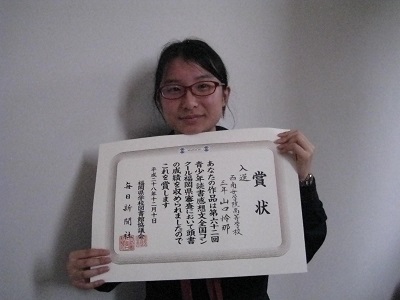 賞状
入選
西南女学院高等学校
三年 山口怜那
あなたの作品は第六十二回
青少年読書感想文全国コン
クール福岡県審査において頭書
の成績を収められましたので
これを賞します
平成二十八年十二月十日
福岡県学校図書館協議会
毎日新聞社